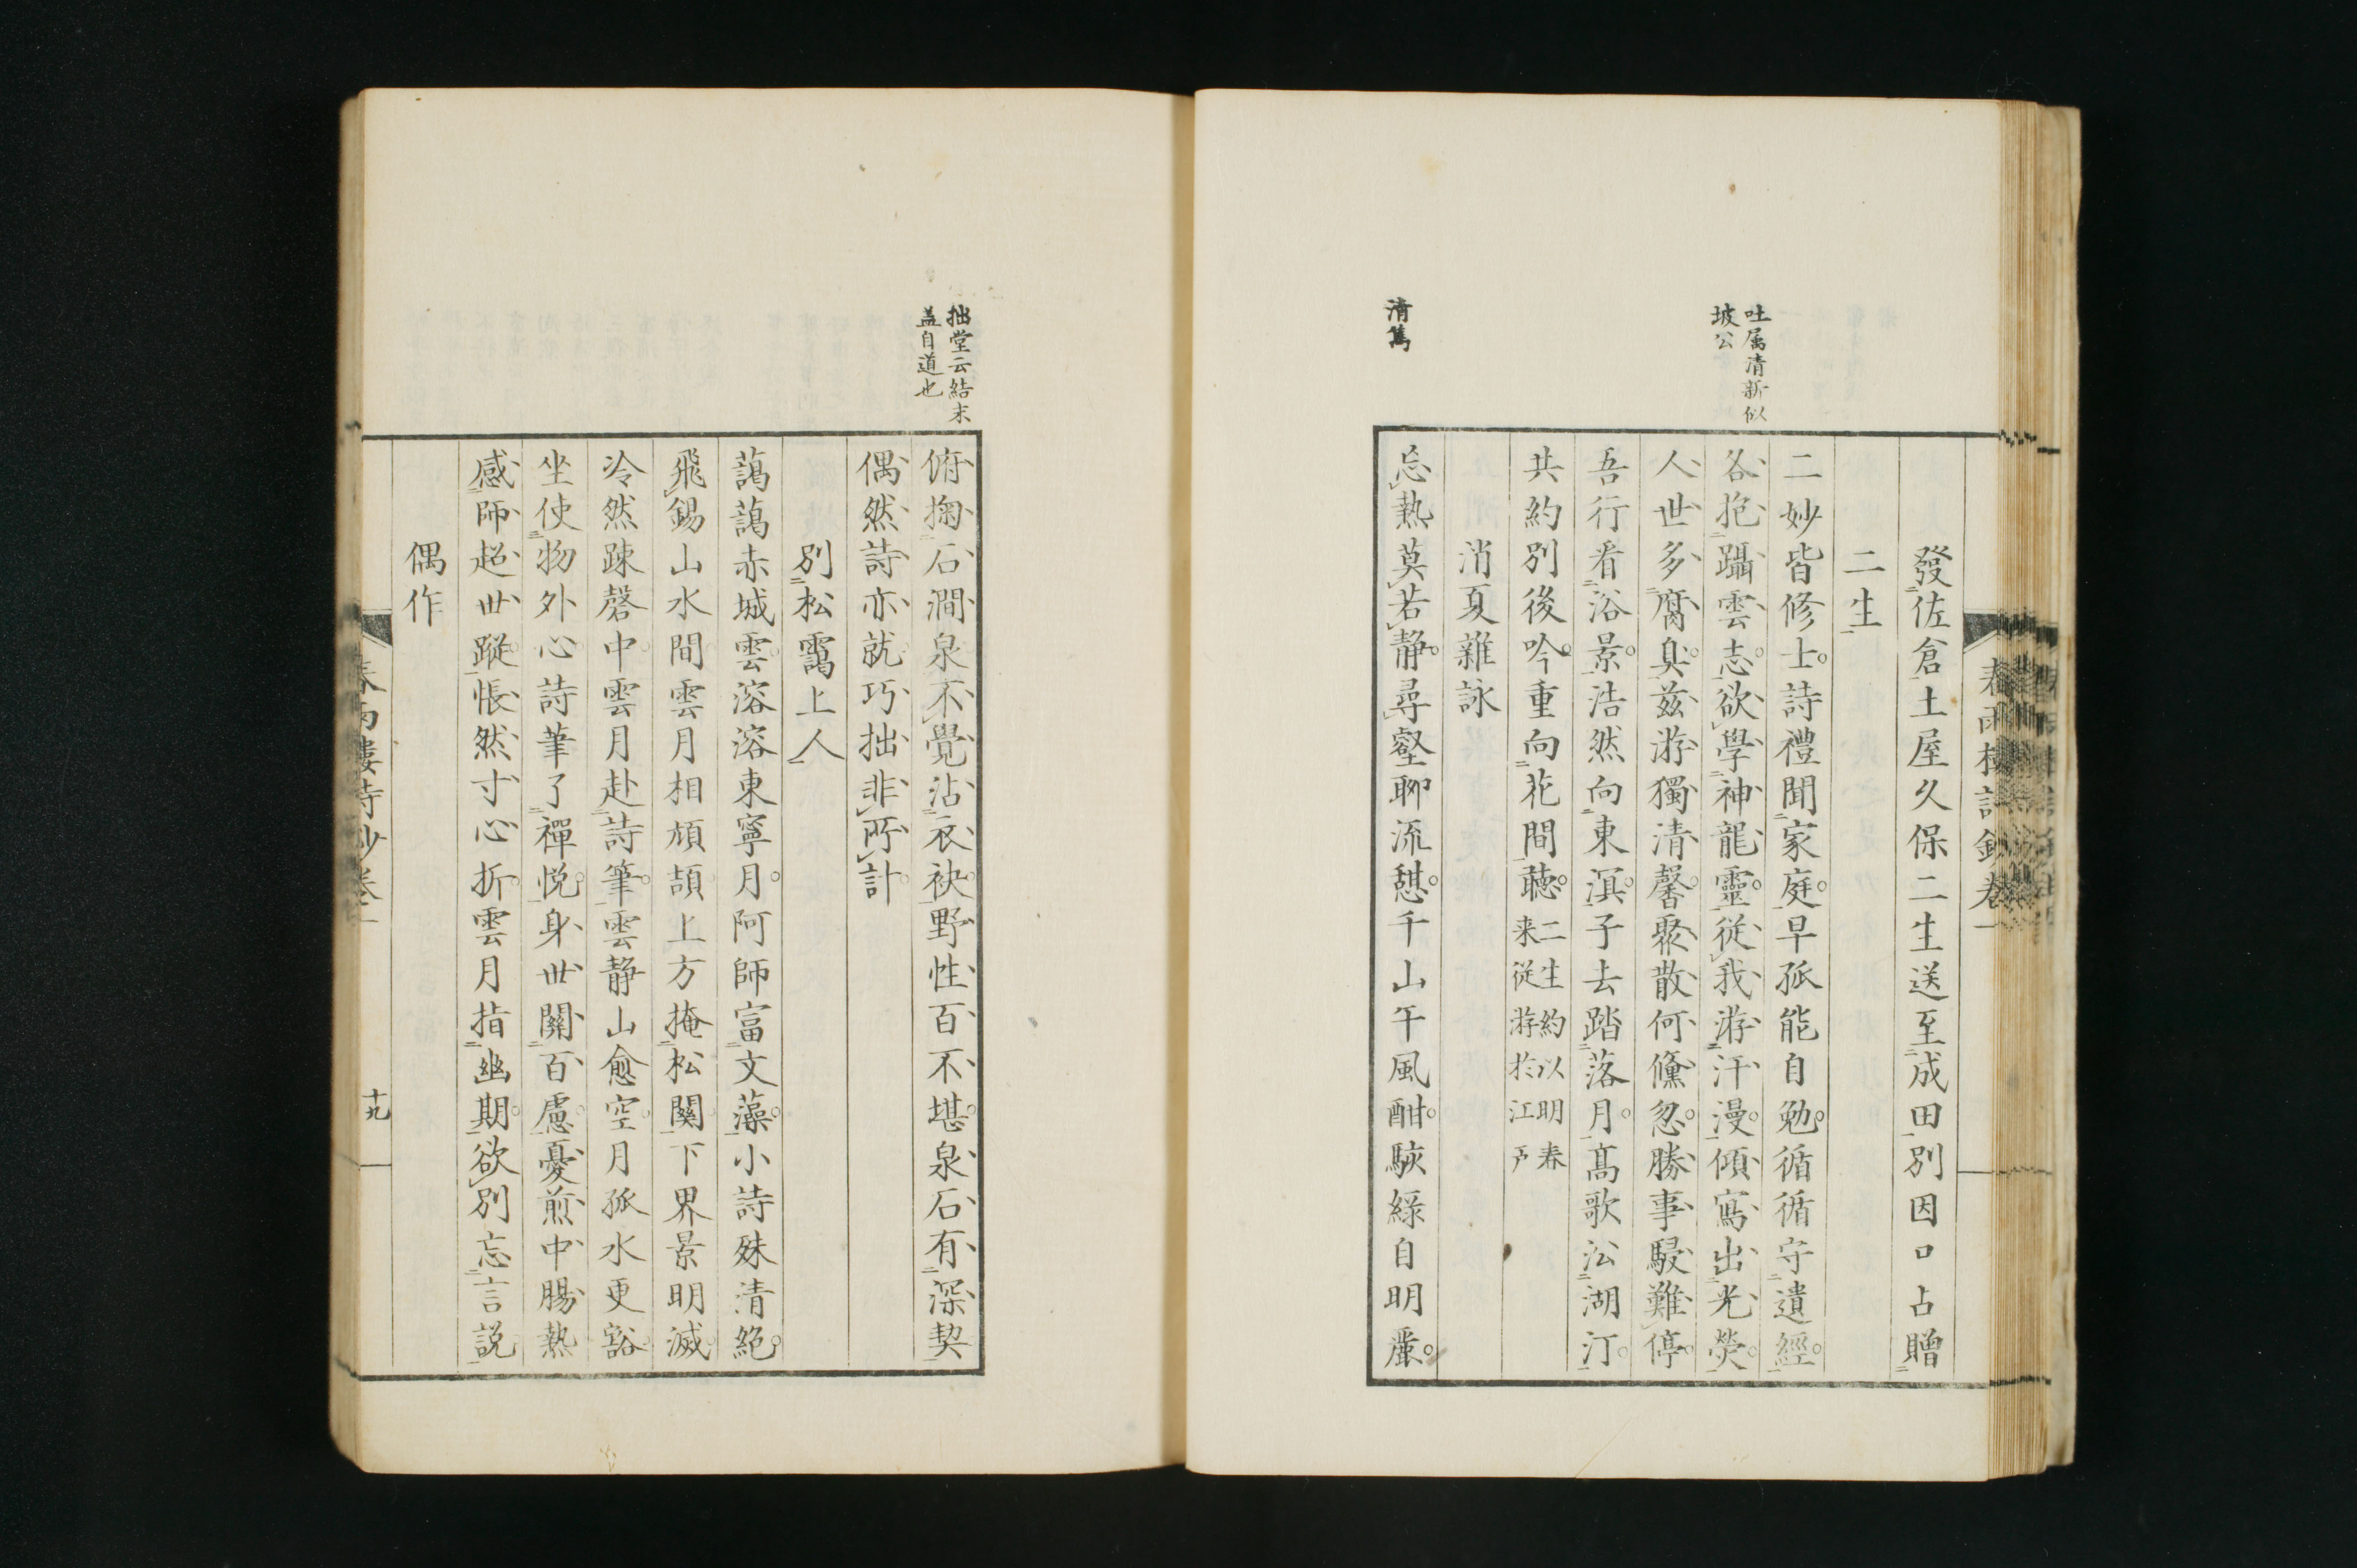 吐属清新似
坡公
清雋
發佐倉土屋久保二生送至成田別因口占贈
二生
二妙皆修士詩禮聞家庭早孤能自勉循循守遺經
各抱躡雲志欲學神龍靈從我游汗漫傾寫出光熒
人世多腐臭兹游獨清馨聚散何儵忽勝事駸難停
吾行看浴景浩然向東溟子去踏落月高歌沿湖汀
共約別後吟重向花間聽二生約以明春
来従游於江戸
消夏雜詠
忘熱莫若静尋壑聊流憇千山午風酣駭綠自明
拙堂云結末
盖自道也
俯掬石澗泉不覺沾衣袂野性百不堪泉石有深契
偶然詩亦就巧拙非所計
別松靄上人
藹藹赤城雲溶溶東寧月阿師富文藻小詩殊清絶
飛錫山水間雲月相頏頡上方掩松關下界景明滅
冷然踈磬中雲月赴詩筆雲静山愈空月孤水更豁
坐使物外心詩筆了禪悦身世關百慮憂煎中腸熱
感師超世蹤悵然寸心折雲月指幽期欲別忘言説
偶作
春雨樓詩鈔卷一
十九